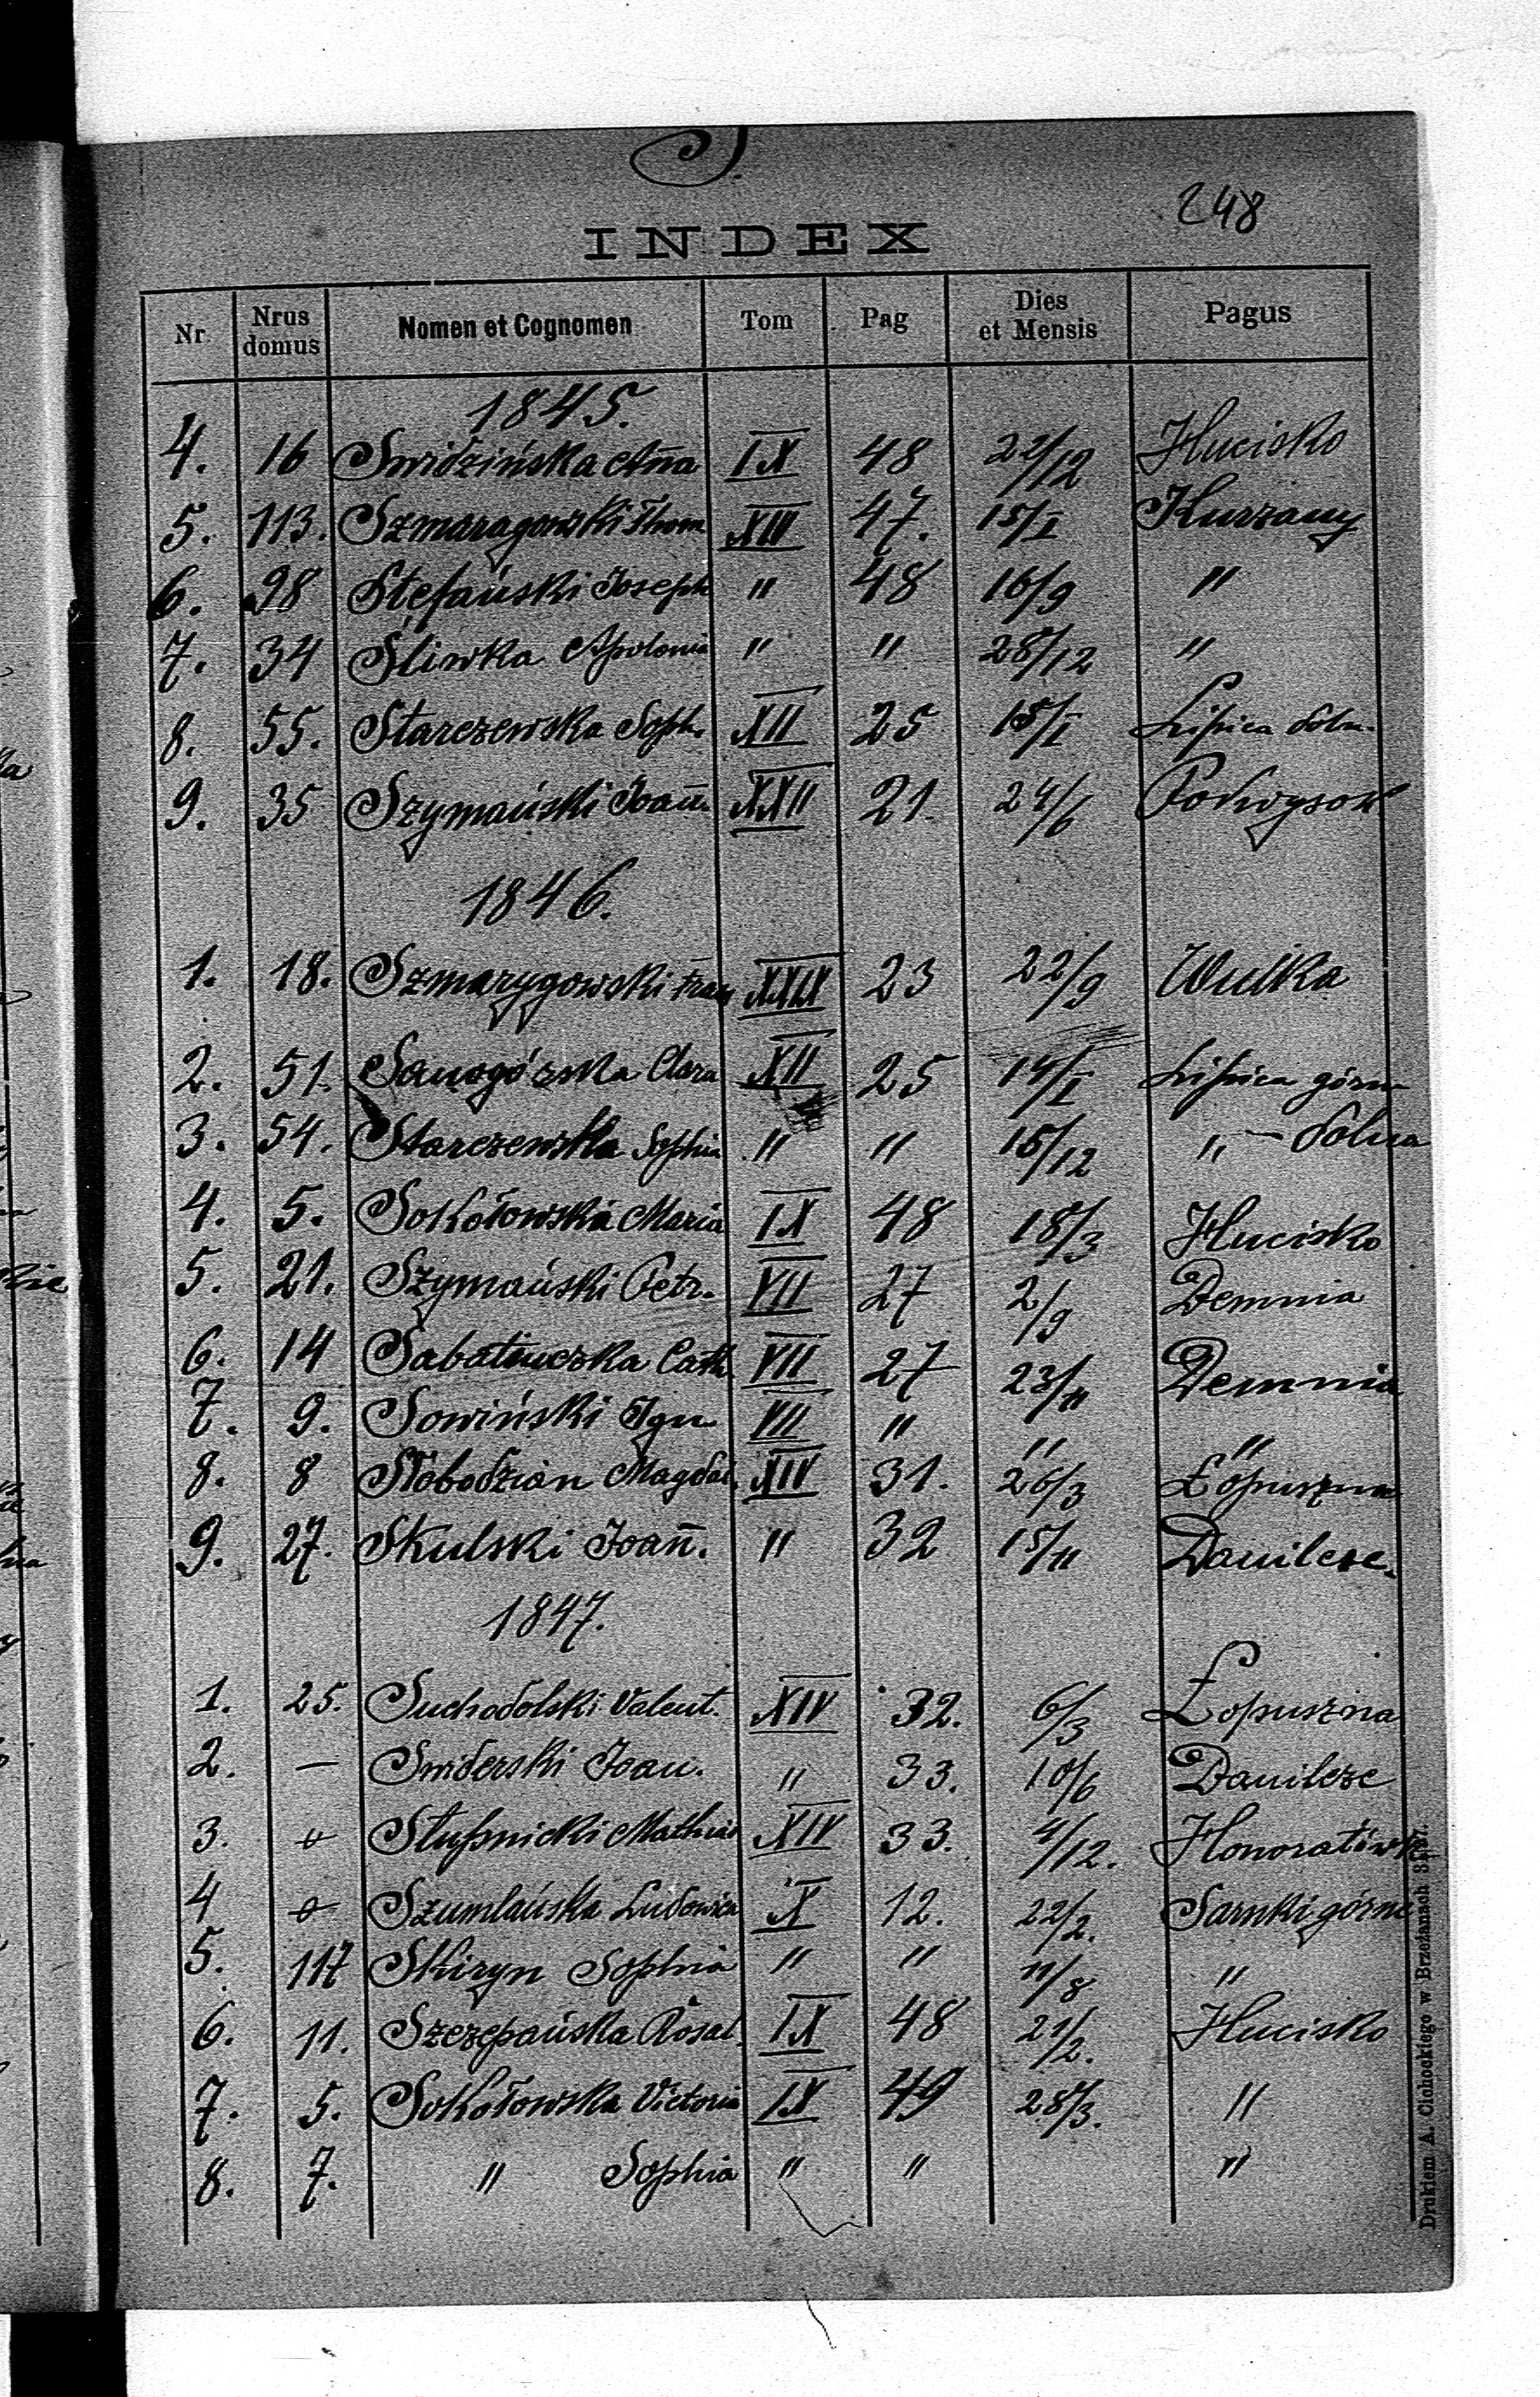 S.
248
INDEX
Nr Nrus domus Nomen et Cognomen Tom Pag Dies et Mensis Pagus
1845.
4. 16 Swidzińska Anna IX 48 22/12 Hucisko
5. 113. Szmaragowski Thom XIV 47. 15/I Kurzany
6. 98 Stefański Joseph " 48 16/9 "
7. 34 Śliwka Apolonia " " 28/12 "
8. 55. Starczewska Soph. XII 25 15/I Lipica doln.
9. 35 Szymański Joann. XXII 21 24/6 Podwysok
1846.
1. 18. Szmarygowski Fran XXIX 23 22/9 Wulka
2. 51. Sanogórska Clara XII 25 14/I Lipica górn
3. 54. Starczewska Sophia " " 15/12 " – dolna
4. 5. Sokołowska Maria IX 48 18/3 Hucisko
5. 21. Szymański Petr. VII 27 2/9 Demnia
6. 14 Cath. VII 27 23/11 Demnia
7. 9. Sowiński Ign VII " " "
8. 8 Słobodzian Magdal. XIV 31. 26/3 Łopuszna
9. 27. Skulski Joann. " 32 15/11 Danilcze.
1847.
1. 25. Suchodolski Valent. XIV 32. 6/3 Łopuszna
2. — Swiderski Joan. " 33. 10/6 Danilcze
3. o Stupnicki Mathias XIV 33. 4/12. Honoratówka
4 o Szumlańska Ludowica X 12. 22/2. Sarnki górne
5. 117 Skiryn Sophia " " 11/8 "
6. 11. Szczepańska Rosal. IX 48 21/2. Hucisko
7. 5. Sokołowska Victoria IX 49 28/3. "
8. 7. " Sophia " " "
Drukiem A. Cichockiego w Brzeżanach